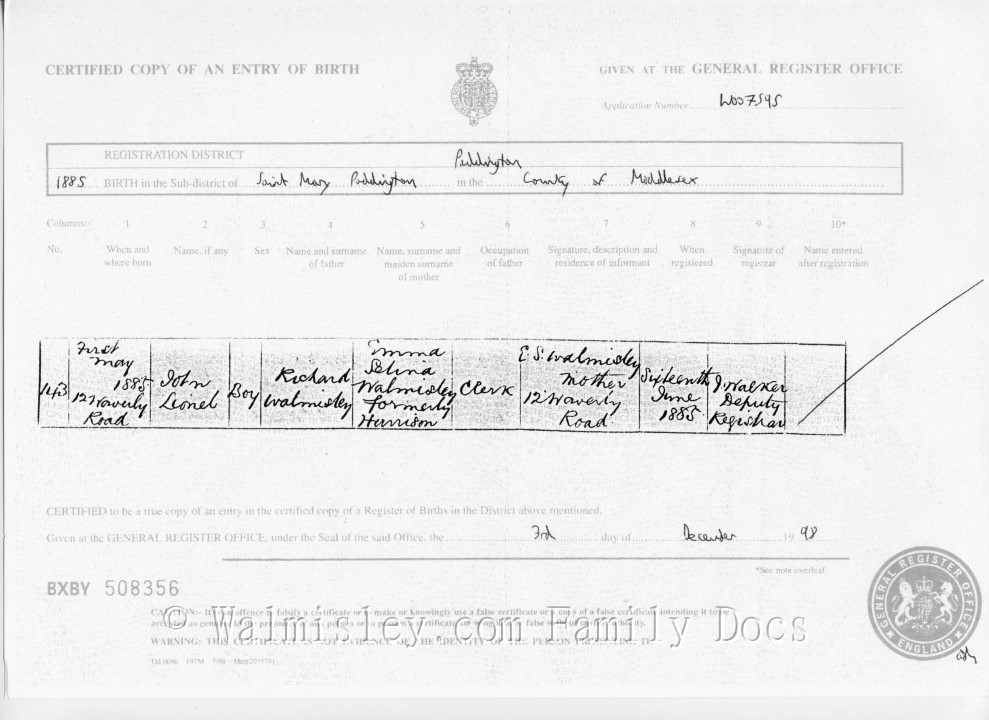 CERTIFIED COPY OF AN ENTRY OF BIRTH
GIVEN AT THE GENERAL REGISTER OFFICE
Application Number W007595
REGISTRATION DISTRICT Paddington
1885 BIRTH in the Sub-district of Saint Mary Paddington in the County of Middlesex
Columns:- 1 2 3 4 5 6 7 8 9 10*
No.
When and
where born
Name, if any
Sex
Name and surname
of father
Name, surname and
maiden surname
of mother
Occupation
of father
Signature, description and
residence of informant
When
registered
Signature of
registrar
Name entered
after registration
143
First
May
1885
12 Waverly
Road
John
Lionel
Boy
Richard
Walmisley
Emma
Selina
Walmisley
formerly
Harrison
Clerk
E. S. Walmisley
Mother
12 Waverly
Road
Sixteenth
June
1885
J. Walker
Deputy
Registrar
CERTIFIED to be a true copy of an entry in the certified copy of a Register of Births in the District above mentioned.
Given at the GENERAL REGISTER OFFICE, under the Seal of the said Office, the 3rd day of December 19 98
*See note overleaf
BXBY 508356
CAUTION:- It is an offence to falsify a certificate or to make or knowingly use a false certificate or a copy of a false certificate intending it to be
accepted as genuine to the prejudice of any person or to possess a certificate knowing it to be false without lawful authority.
WARNING: THIS CERTIFICATE IS NOT EVIDENCE OF THE IDENTITY OF THE PERSON PRESENTING IT.
© Walmisley.com Family Docs
GENERAL REGISTER OFFICE
ENGLAND